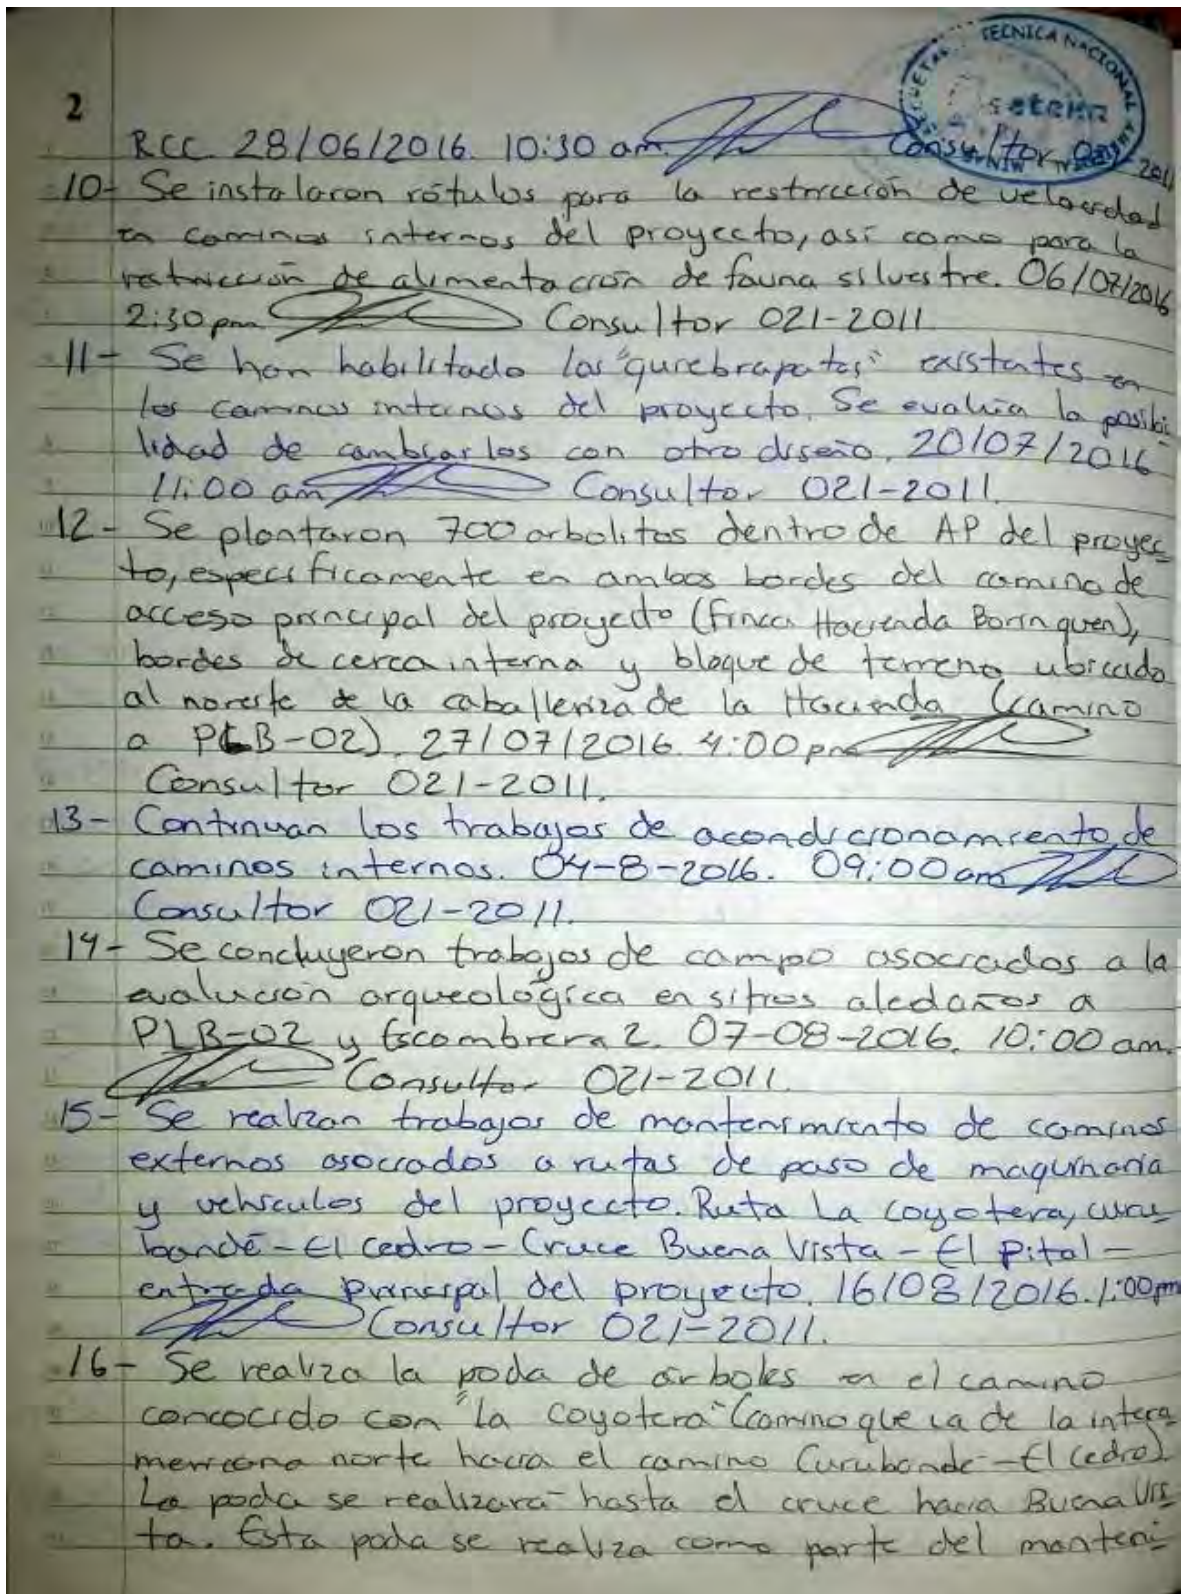 SECRETARIA TECNICA NACIONAL
setena
2
RCC 28/06/2016. 10:30 am. Consultor 021-2011
10- Se instalaron rótulos para la restricción de velocidad
en caminos internos del proyecto, así como para la
restricción de alimentación de fauna silvestre. 06/07/2016
2:30 pm. Consultor 021-2011
11- Se han habilitado los "qurebrapatas" existentes en
los caminos internos del proyecto. Se evalúa la posibi-
lidad de cambiarlos con otro diseño. 20/07/2016
11:00 am Consultor 021-2011.
12- Se plantaron 700 arbolitos dentro de AP del proyec-
to, específicamente en ambos bordes del camino de
acceso principal del proyecto (finca Hacienda Borinquen),
bordes de cerca interna y bloque de terreno ubicado
al noreste de la caballeriza de la Hacienda (camino
a PLB-02). 27/07/2016. 4:00 pm
Consultor 021-2011.
13- Continuan los trabajos de acondicionamiento de
caminos internos. 04-8-2016. 09:00 am
Consultor 021-2011.
14- Se concluyeron trabajos de campo asociados a la
evalución arqueológica en sitios aledaños a
PLB-02 y Escombrera 2. 07-08-2016. 10:00 am.
Consultor 021-2011.
15- Se realizan trabajos de mantenimiento de caminos
externos asociados a rutas de paso de maquinaria
y vehículos del proyecto. Ruta La coyotera, curu-
bandé - El Cedro - Cruce Buena Vista - El Pital -
entrada principal del proyecto. 16/08/2016. 1:00 pm
Consultor 021-2011.
16- Se realiza la poda de árboles en el camino
concocido con "la coyotera" (camino que va de la intera
mericana norte hacia el camino Curubandé - El Cedro).
La poda se realizará hasta el cruce hacia Buena Vis-
ta. Esta poda se realiza como parte del manteni-